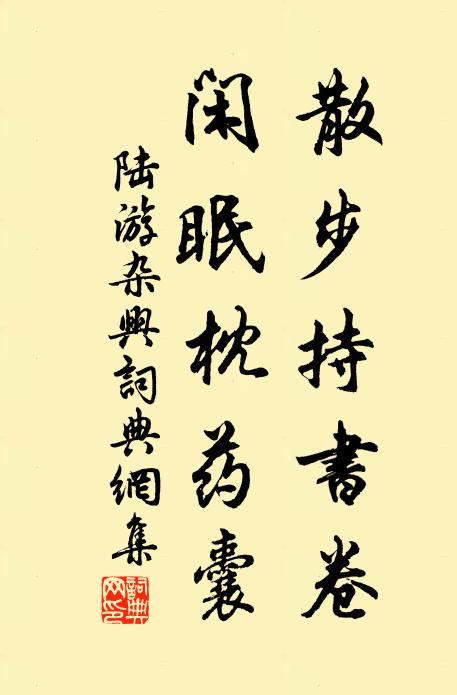 散步持書卷
闲眠枕药囊
陆游杂興詞典網集
詞典网印